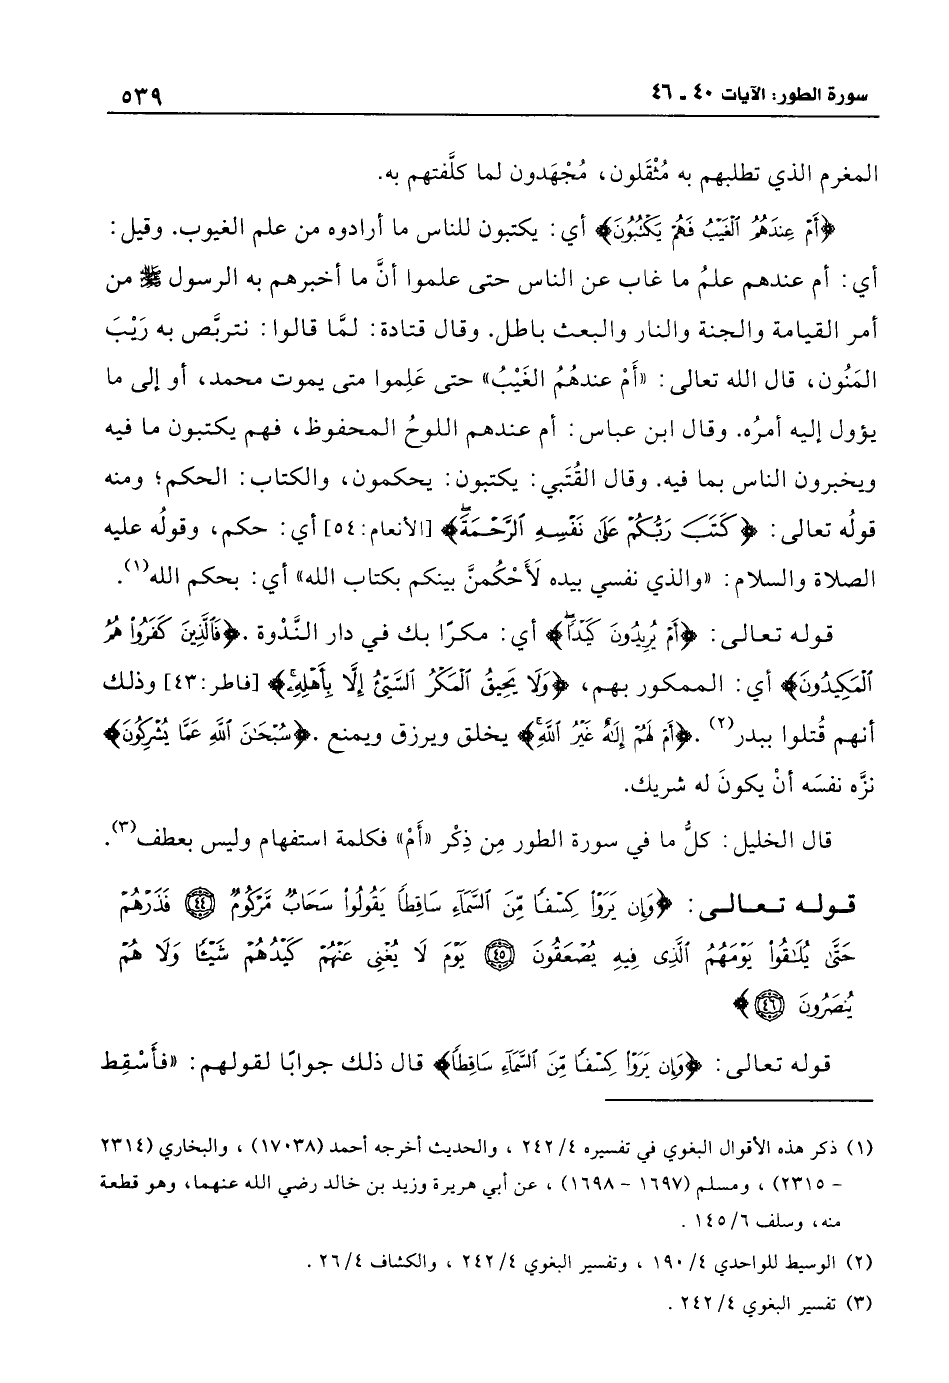 سورة الطور: الآيات ٤٠ ـ ٤٦ ٥٣٩
المغرم الذي تطلبهم به مُثْقَلون، مُجْهَدون لما كلَّفتهم به.
﴿أَمْ عِندَهُمُ ٱلْغَيْبُ فَهُمْ يَكْتُبُونَ﴾ أي: يكتبون للناس ما أرادوه من علم الغيوب. وقيل:
أي: أم عندهم علمُ ما غاب عن الناس حتى علموا أنَّ ما أخبرهم به الرسول ﷺ من
أمر القيامة والجنة والنار والبعث باطل. وقال قتادة: لمَّا قالوا: نتربَّص به رَيْبَ
المَنُون، قال الله تعالى: «أَمْ عندهُمُ الغَيْبُ» حتى عَلِموا متى يموت محمد، أو إلى ما
يؤول إليه أمرُه. وقال ابن عباس: أم عندهم اللوحُ المحفوظ، فهم يكتبون ما فيه
ويخبرون الناس بما فيه. وقال القُتَبي: يكتبون: يحكمون، والكتاب: الحكم؛ ومنه
قولُه تعالى: ﴿كَتَبَ رَبُّكُمْ عَلَىٰ نَفْسِهِ ٱلرَّحْمَةَۖ﴾ [الأنعام:٥٤] أي: حكم، وقولُه عليه
الصلاة والسلام: «والذي نفسي بيده لَأَحْكُمنَّ بينكم بكتاب الله» أي: بحكم الله(١).
قوله تعالى: ﴿أَمْ يُرِيدُونَ كَيْدًاۖ﴾ أي: مكرًا بك في دار النَّدْوة .﴿فَٱلَّذِينَ كَفَرُوا۟ هُمُ
ٱلْمَكِيدُونَ﴾ أي: الممكور بهم، ﴿وَلَا يَحِيقُ ٱلْمَكْرُ ٱلسَّيِّئُ إِلَّا بِأَهْلِهِۦۚ﴾ [فاطر:٤٣] وذلك
أنهم قُتلوا ببدر(٢) .﴿أَمْ لَهُمْ إِلَٰهٌ غَيْرُ ٱللَّهِۚ﴾ يخلق ويرزق ويمنع .﴿سُبْحَٰنَ ٱللَّهِ عَمَّا يُشْرِكُونَ﴾
نزَّه نفسَه أنْ يكونَ له شريك.
قال الخليل: كلُّ ما في سورة الطور مِن ذِكْر «أَمْ» فكلمة استفهام وليس بعطف(٣).
قوله تعالى: ﴿وَإِن يَرَوْا۟ كِسْفًا مِّنَ ٱلسَّمَآءِ سَاقِطًا يَقُولُوا۟ سَحَابٌ مَّرْكُومٌ ٤٤ فَذَرْهُمْ
حَتَّىٰ يُلَٰقُوا۟ يَوْمَهُمُ ٱلَّذِى فِيهِ يُصْعَقُونَ ٤٥ يَوْمَ لَا يُغْنِى عَنْهُمْ كَيْدُهُمْ شَيْـًٔا وَلَا هُمْ
يُنصَرُونَ ٤٦﴾
قوله تعالى: ﴿وَإِن يَرَوْا۟ كِسْفًا مِّنَ ٱلسَّمَآءِ سَاقِطًا﴾ قال ذلك جوابًا لقولهم: «فأَسْقِط
(١) ذكر هذه الأقوال البغوي في تفسيره ٢٤٢/٤ ، والحديث أخرجه أحمد (١٧٠٣٨) ، والبخاري (٢٣١٤
- ٢٣١٥) ، ومسلم (١٦٩٧ - ١٦٩٨) ، عن أبي هريرة وزيد بن خالد رضي الله عنهما، وهو قطعة
منه، وسلف ١٤٥/٦ .
(٢) الوسيط للواحدي ١٩٠/٤ ، وتفسير البغوي ٢٤٢/٤ ، والكشاف ٢٦/٤ .
(٣) تفسير البغوي ٢٤٢/٤ .